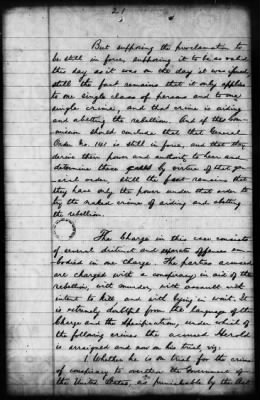 21
But supposing the proclamation to
be still in force, supposing it to be as valid
this day as it was on the day it was issued,
still the fact remains that it only applies
to one single class of persons and to one
single crime, and that crime is aiding
and abetting the rebellion. And if this Com-
mission should conclude that that General
Order No. 141 is still in force, and that they
derive their power and authority to hear and
determine these by virtue of that gen-
eral order, still the fact remains that
they have only the power under that order to
try the naked crime of aiding and abetting
the rebellion.
The Charge in this case consists
of several distinct and separate offenses em-
bodied in one charge. The parties accused
are charged with a conspiracy in aid of the
rebellion, with murder, with assault with
intent to kill, and with lying in wait. It
is extremely doubtful from the language of the
Charge and the Specification, under which of
the following crimes the accused Herold
is arraigned and now on his trial, viz:
1 Whether he is on trial for the crime
of conspiracy to overthrow the Government of
the United States, as punishable by the Act